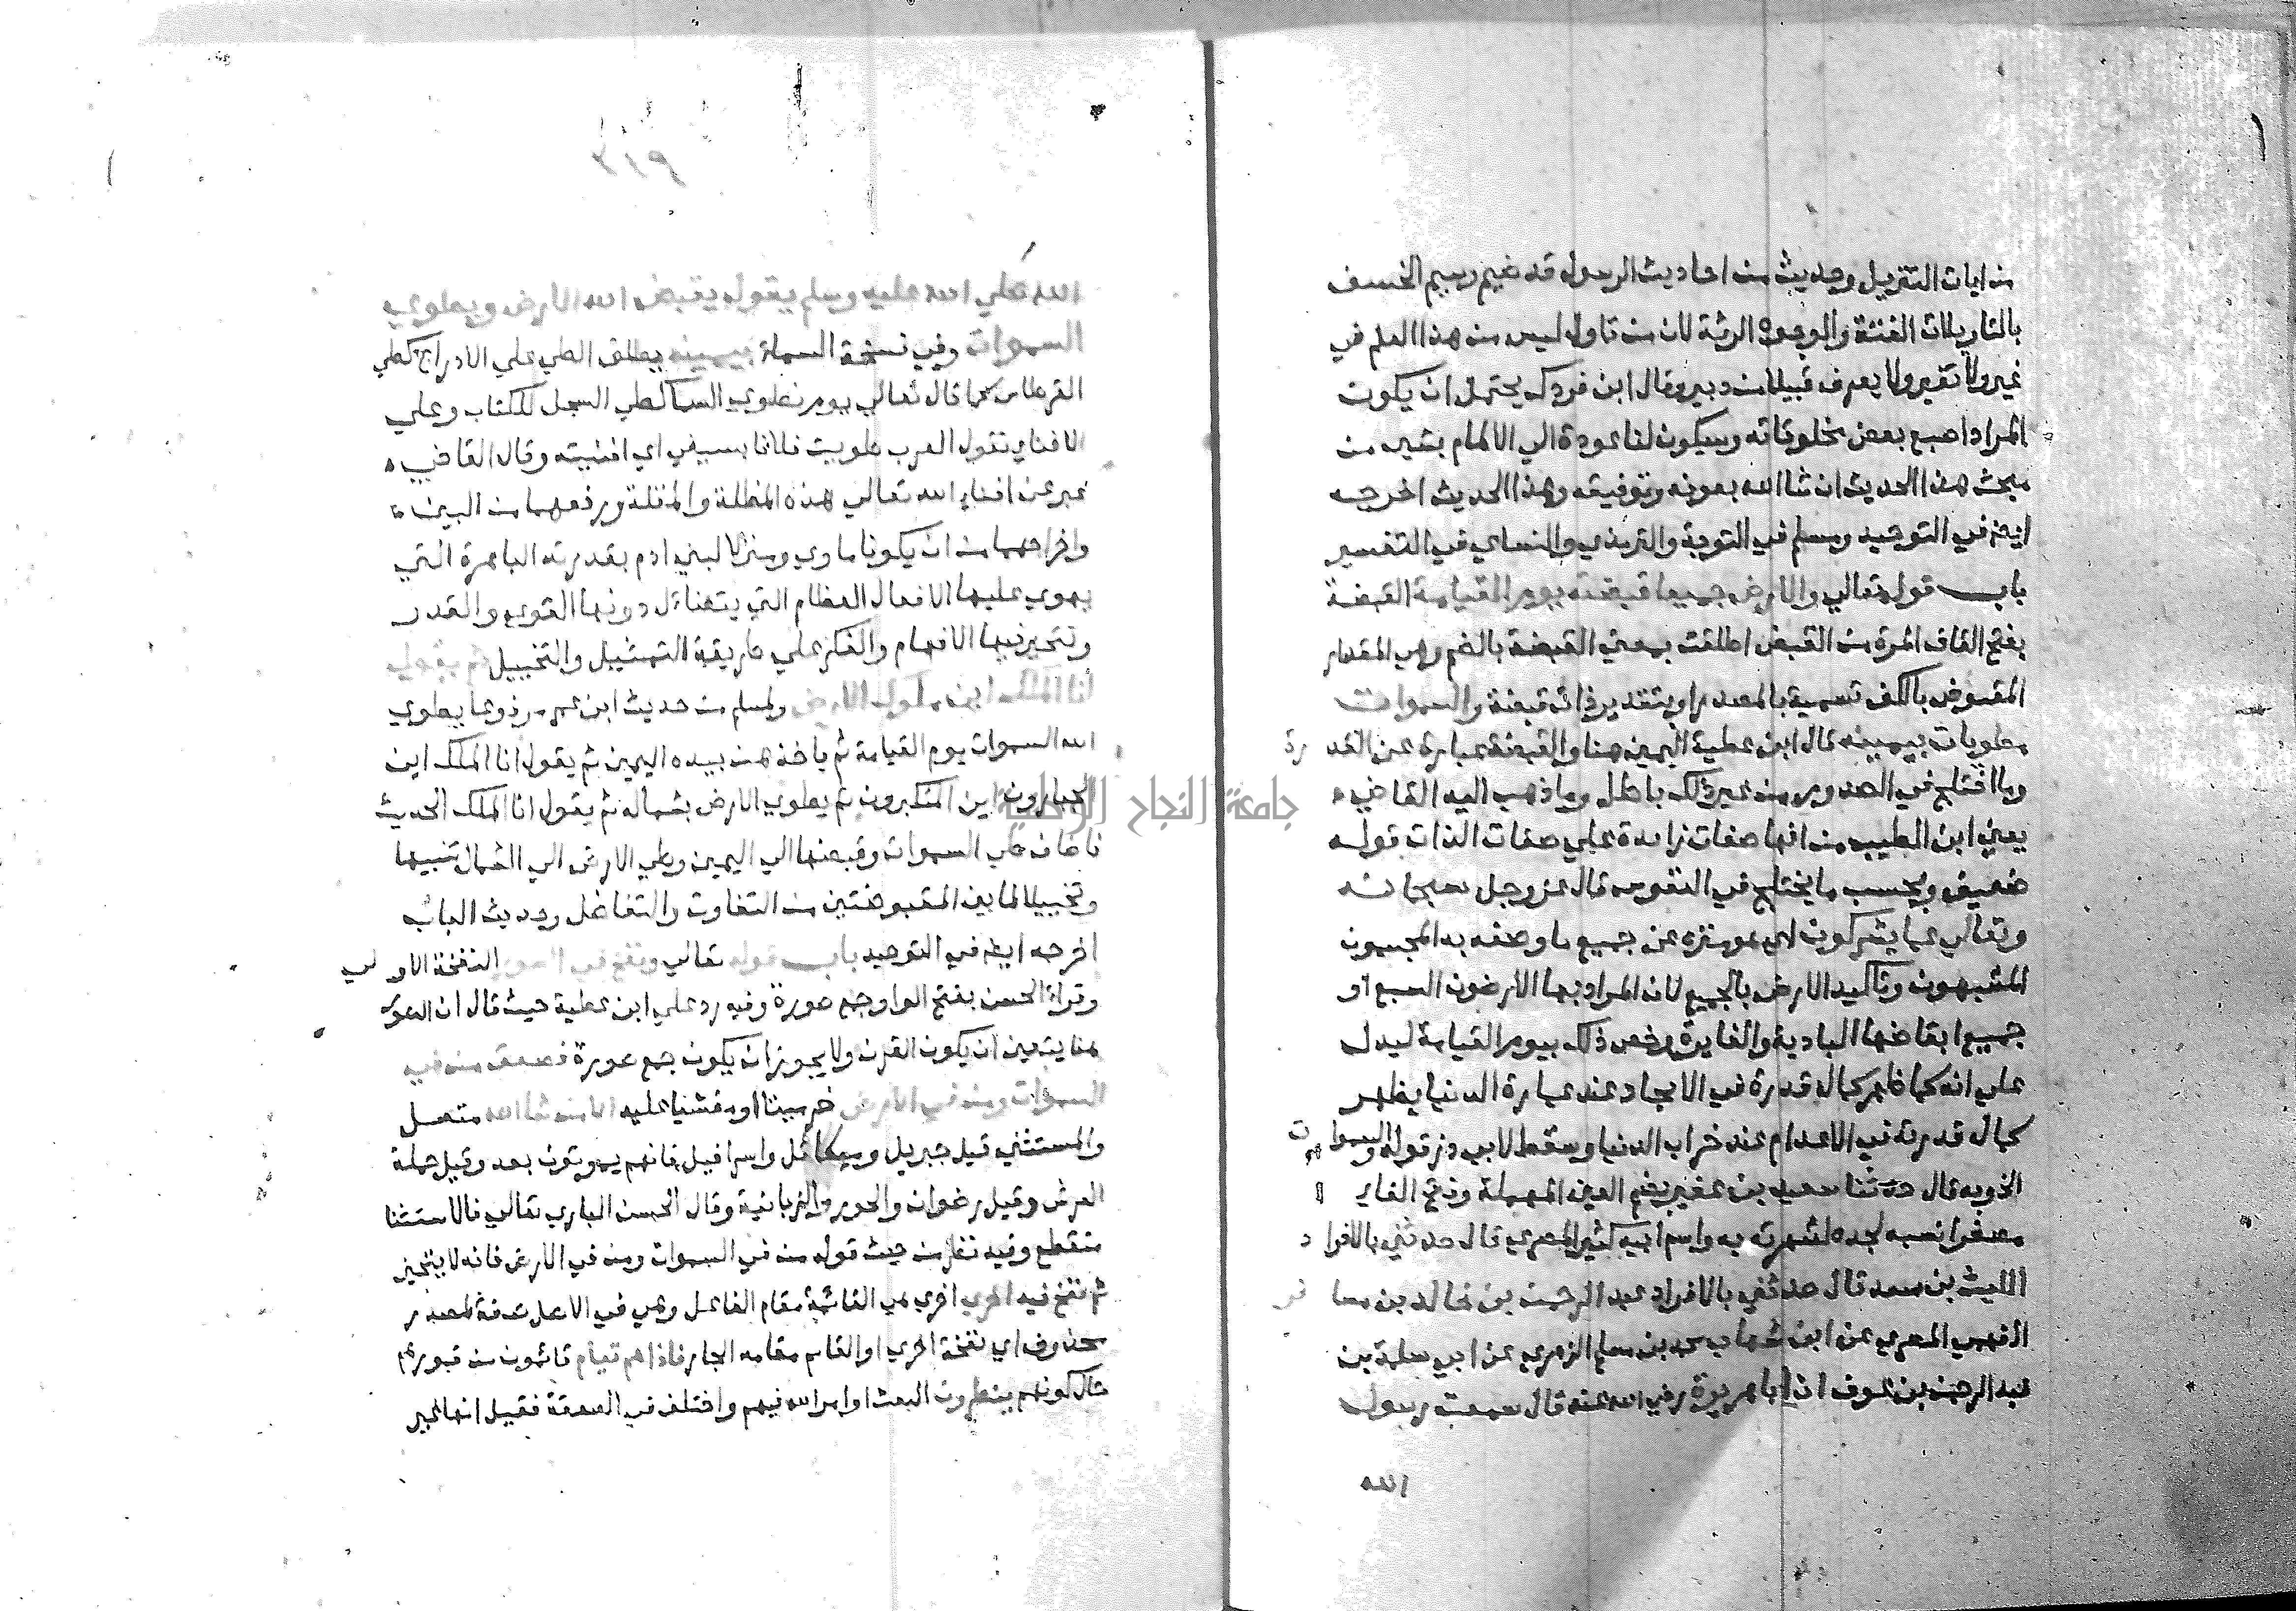 من ايات التنزيل وحديث من احاديث الرسول قد ضيم وسيم الخسف
بالتاويلات الغثة والوجوه الرثة لان من تاوله ليس من هذا العلم في
عير ولا نقير ولا يعرف قبيلا من دبير وقال ابن فورك يحتمل ان يكون
المراد اصبع بعض مخلوقاته وسيكون لنا عودة الي الالمام بشيء من
مبحث هذا الحديث ان شا الله بعونه وتوفيقه وهذا الحديث اخرجه
ايضا في التوحيد ومسلم في التوبة والترمذي والنساي في التفسير
باب قوله تعالي والارض جميعا قبضته يوم القيامة القبضة
بفتح القاف المرة من القبض اطلقت بمعني القبضة بالضم وهي المقدار
المقبوض بالكف تسمية بالمصدر او بتقدير ذات قبضة والسموات
مطويات بيمينه قال ابن عطية اليمين هنا والقبضة عبارة عن القدرة
وما اختلج في الصدور من غير ذلك باطل وما ذهب اليه القاضي
يعني ابن الطيب من انها صفات زايدة علي صفات الذات قوله
ضعيف وبحسب ما يختلج في النفوس قال عز وجل سبحانه
وتعالي عما يشركون اي هو منزه عن جميع ما وصفه به المجسمون
المشبهون وتاكيد الارض بالجميع لان المراد بها الارضون السبع او
جميع ابعاضها البادية والغايرة وخص ذلك بيوم القيامة ليدل
علي انه كما ظهر كمال قدرة في الايجاد عند عمارة الدنيا يظهر
كمال قدرته في الاعدام عند خراب الدنيا وسقط لابي ذر قوله والسموات
الخ وبه قال حدثنا سعيد بن عفير بضم العين المهملة وفتح الفاء
مصغرا نسبه لجده لشهرته به واسم ابيه كثير المصري قال حدثني بالافراد
الليث بن سعد قال حدثني بالافراد عبد الرحمن بن خالد بن مسافر
الفهمي المصري عن ابن شهاب محمد بن مسلم الزهري عن ابي سلمة بن
عبد الرحمن بن عوف ان ابا هريرة رضي الله عنه قال سمعت رسول
الله
٣١٩
الله صلي الله عليه وسلم يقول يقبض الله الارض ويطوي
السموات وفي نسخة السماء بيمينه يطلق الطي علي الادراج كطي
القرطاس كما قال تعالي يوم نطوي السما كطي السجل للكتاب وعلي
الافناء تقول العرب طويت فلانا بسيفي اي افنيته وقال القاضي
عبر عن افناء الله تعالي هذه المظلة والمقلة ورفعهما من البين
واخراجهما من ان يكونا ماوي ومنزلا لبني ادم بقدرته الباهرة التي
يهوي عليها الافعال العظام التي يتضاءل دونها القوي والقدر
وتتحير فيها الافهام والفكر علي طريقة التمثيل والتخييل ثم يقول
انا الملك اين ملوك الارض ولمسلم من حديث ابن عمر مرفوعا يطوي
الله السموات يوم القيامة ثم ياخذهن بيده اليمين ثم يقول انا الملك اين
الجبارون اين المتكبرون ثم يطوي الارض بشماله ثم يقول انا الملك الحديث
فاضاف طي السموات وقبضها الي اليمين وطي الارض الي الشمال تنبيها
وتخييلا لما بين المقبوضتين من التفاوت والتفاضل وحديث الباب
اخرجه ايضا في التوحيد باب قوله تعالي ونفخ في الصور النفخة الاولي
وقراءة الحسن بفتح الواو جمع صورة وفيه رد علي ابن عطية حيث قال ان الصور
هنا يتعين ان يكون القرن ولا يجوز ان يكون جمع صورة فصعق من في
السموات ومن في الارض خر ميتا او مغشيا عليه الا من شا الله متصل
والمستثني قيل جبريل وميكائل واسرافيل فانهم يموتون بعد وقيل حملة
العرش وقيل رضوان والحور والزبانية وقال الحسن الباري تعالي فالاستثنا
منقطع وفيه نظر من حيث قوله من في السموات ومن في الارض فانه لا يتحيز
ثم نفخ فيه اخري اخري هي القائمة مقام الفاعل وهي في الاصل صفة لمصدر
محذوف اي نفخة اخري او القايم مقامه الجار فاذا هم قيام قائمون من قبورهم
حال كونهم ينظرون البعث او امر الله فيهم واختلف في الصعقة فقيل انها غير
جامعة النجاح الوطنية